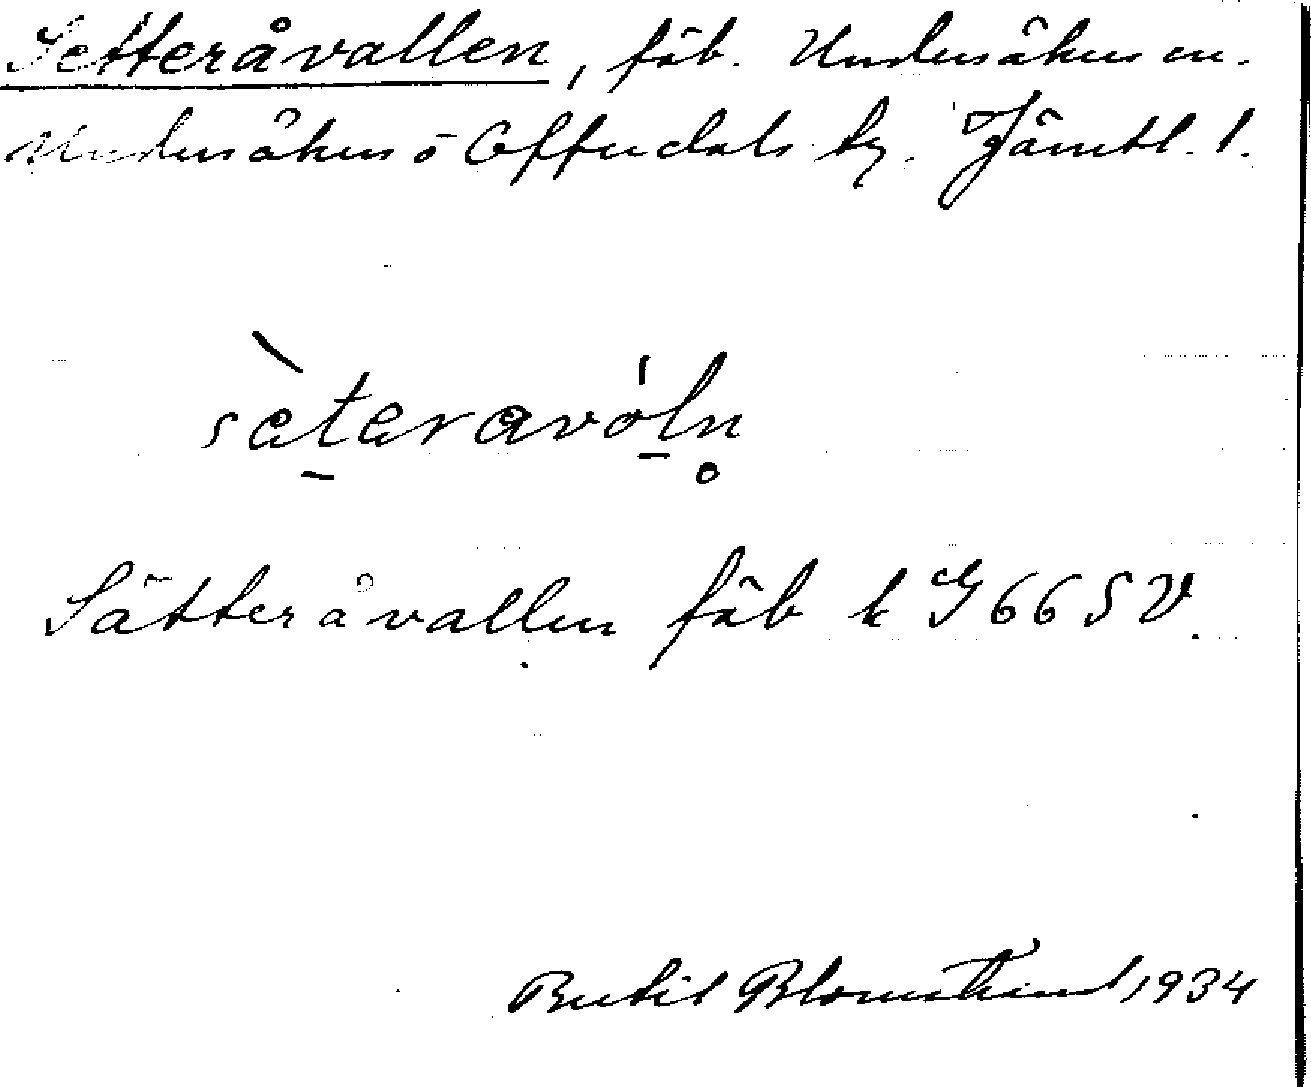 Setteråvallen, fäb. Undersåkers sn.
Undersåkers o Offerdals tg. Jämtl. l.
sèteravóln̥
Sätteråvallen fäb k G 66 SV.
Bertil Blomstrand 1934